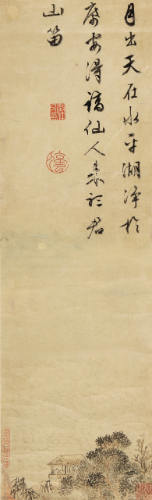 月出天在水平湖淨於
席安得謫仙人來聽君
山笛